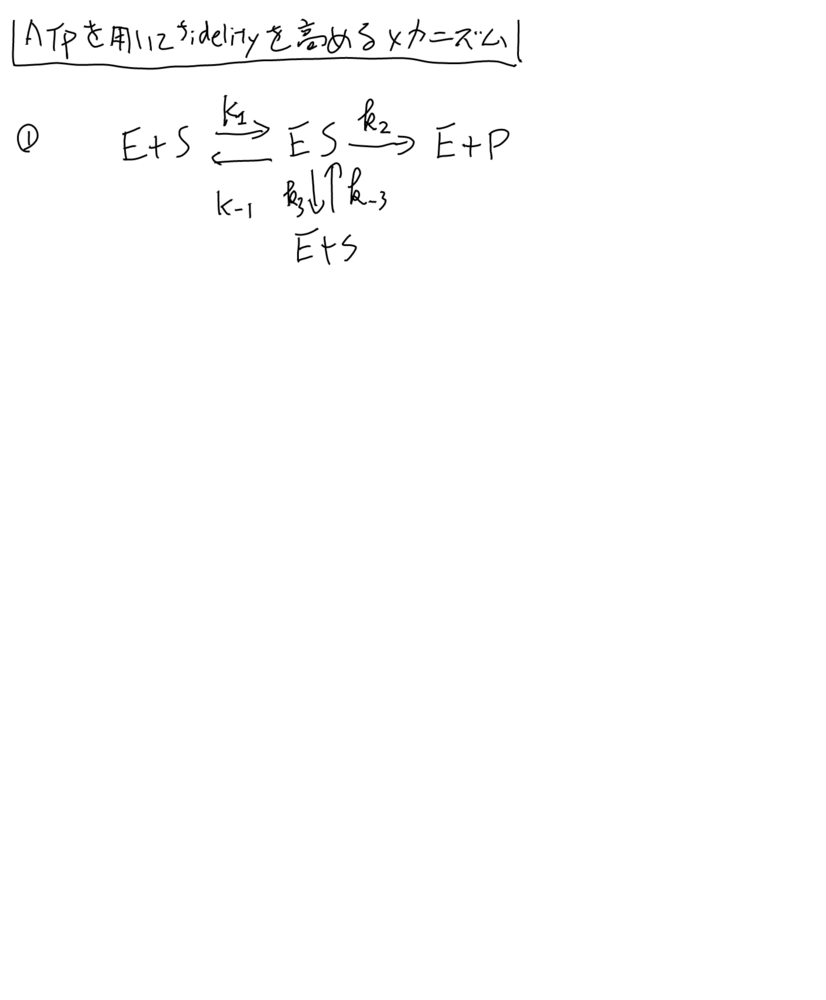 ATPを用いてfidelityを高めるメカニズム
① E+S ⇌ ES → E+P
k1 k2
k-1 k3 ↓↑ k-3
E+S